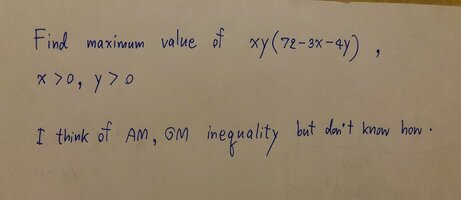 Find maximum value of xy(72-3x-4y),
x>0, y>0
I think of AM, GM inequality but don't know how.